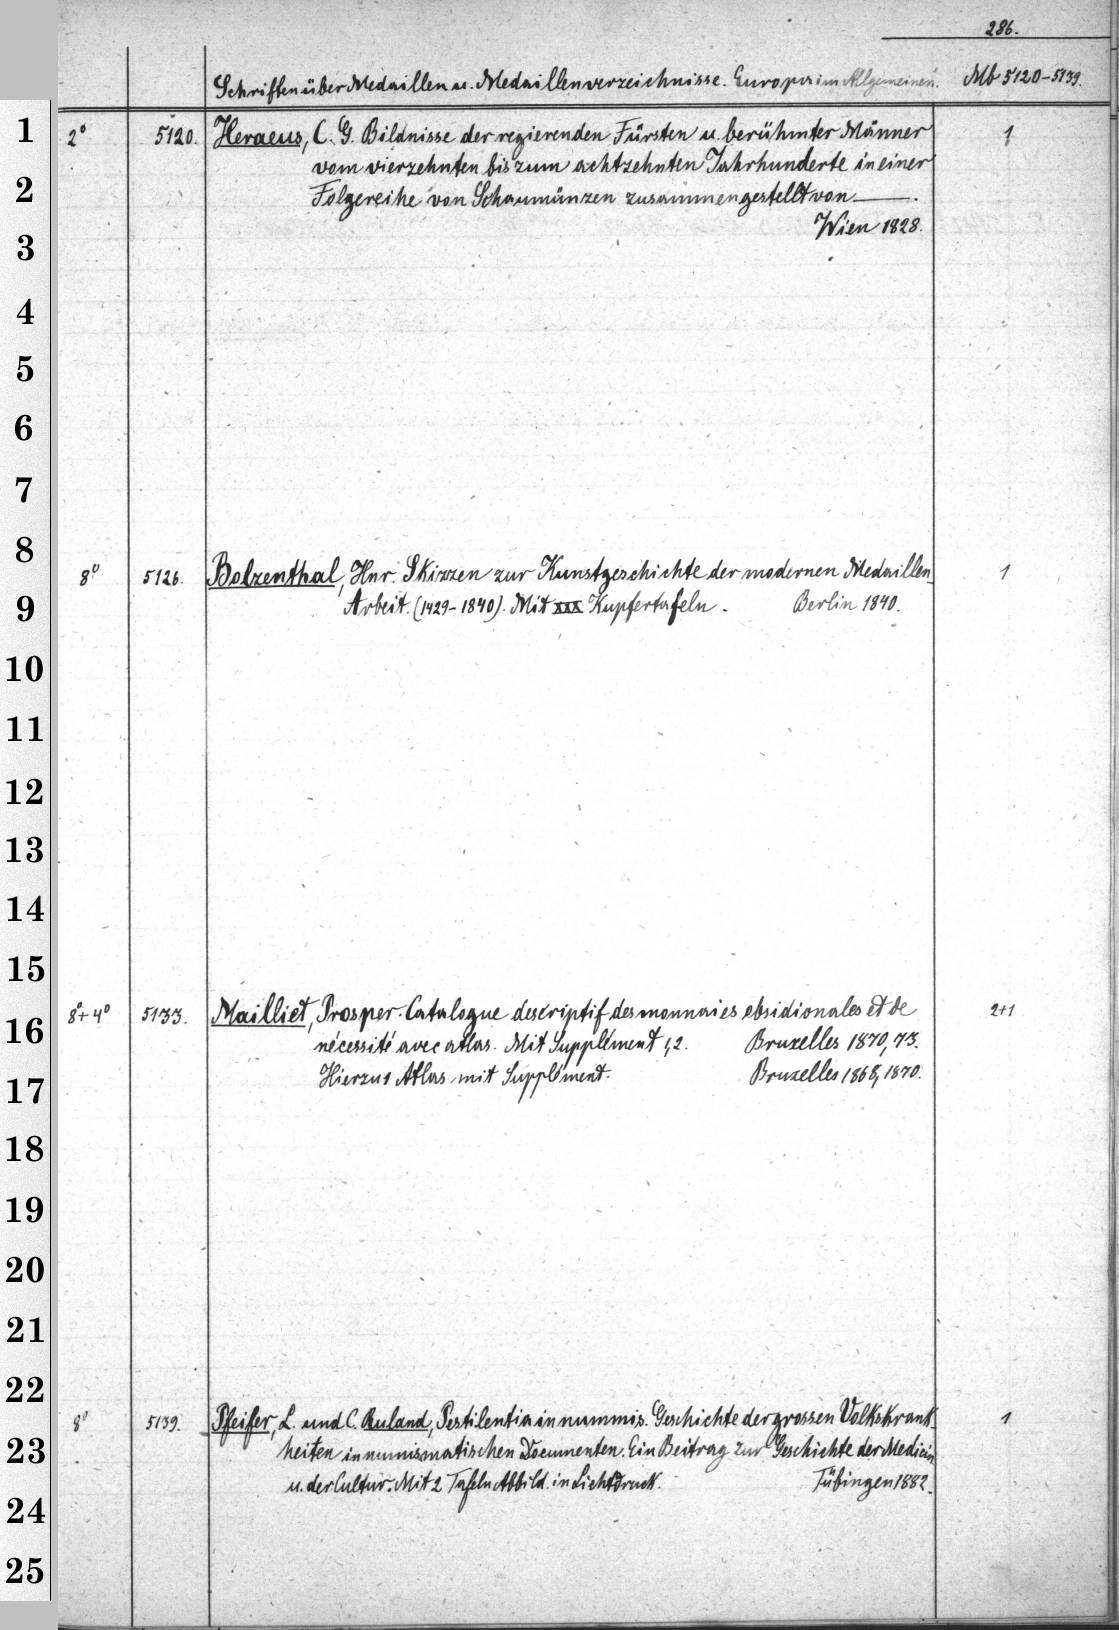 286.
Schriften über Medaillen u. Medaillenverzeichnisse. Europa im Allgemeinen. Mb 5120-5139.
1
2° 5120. Heraeus, C. G. Bildnisse der regierenden Fürsten u. berühmter Männer 1
vom vierzehnten bis zum achtzehnten Jahrhunderte in einer
2
Folgereihe von Schaumünzen zusammengestellt von ——.
Wien 1828.
3
4
5
6
7
8
8° 5126. Bolzenthal, Hnr. Skizzen zur Kunstgeschichte der modernen Medaillen 1
9 Arbeit. (1429-1840). Mit XXX Kupfertafeln. Berlin 1840.
10
11
12
13
14
15
8°+4° 5133. Mailliet, Prosper. Catalogue descriptif des monnaies obsidionales et de 2+1
16
nécessité avec atlas. Mit Supplément 1,2. Bruxelles 1870, 73.
Hierzu 1 Atlas mit Supplément. Bruxelles 1868, 1870.
17
18
19
20
21
22
8° 5139. Pfeifer, L. und C. Ruland, Pestilentia in nummis. Geschichte der grossen Volkskrank 1
23 heiten in numismatischen Documenten. Ein Beitrag zur Geschichte der Medicin
u. der Cultur. Mit 2 Tafeln Abbild. in Lichtdruck. Tübingen 1882.
24
25